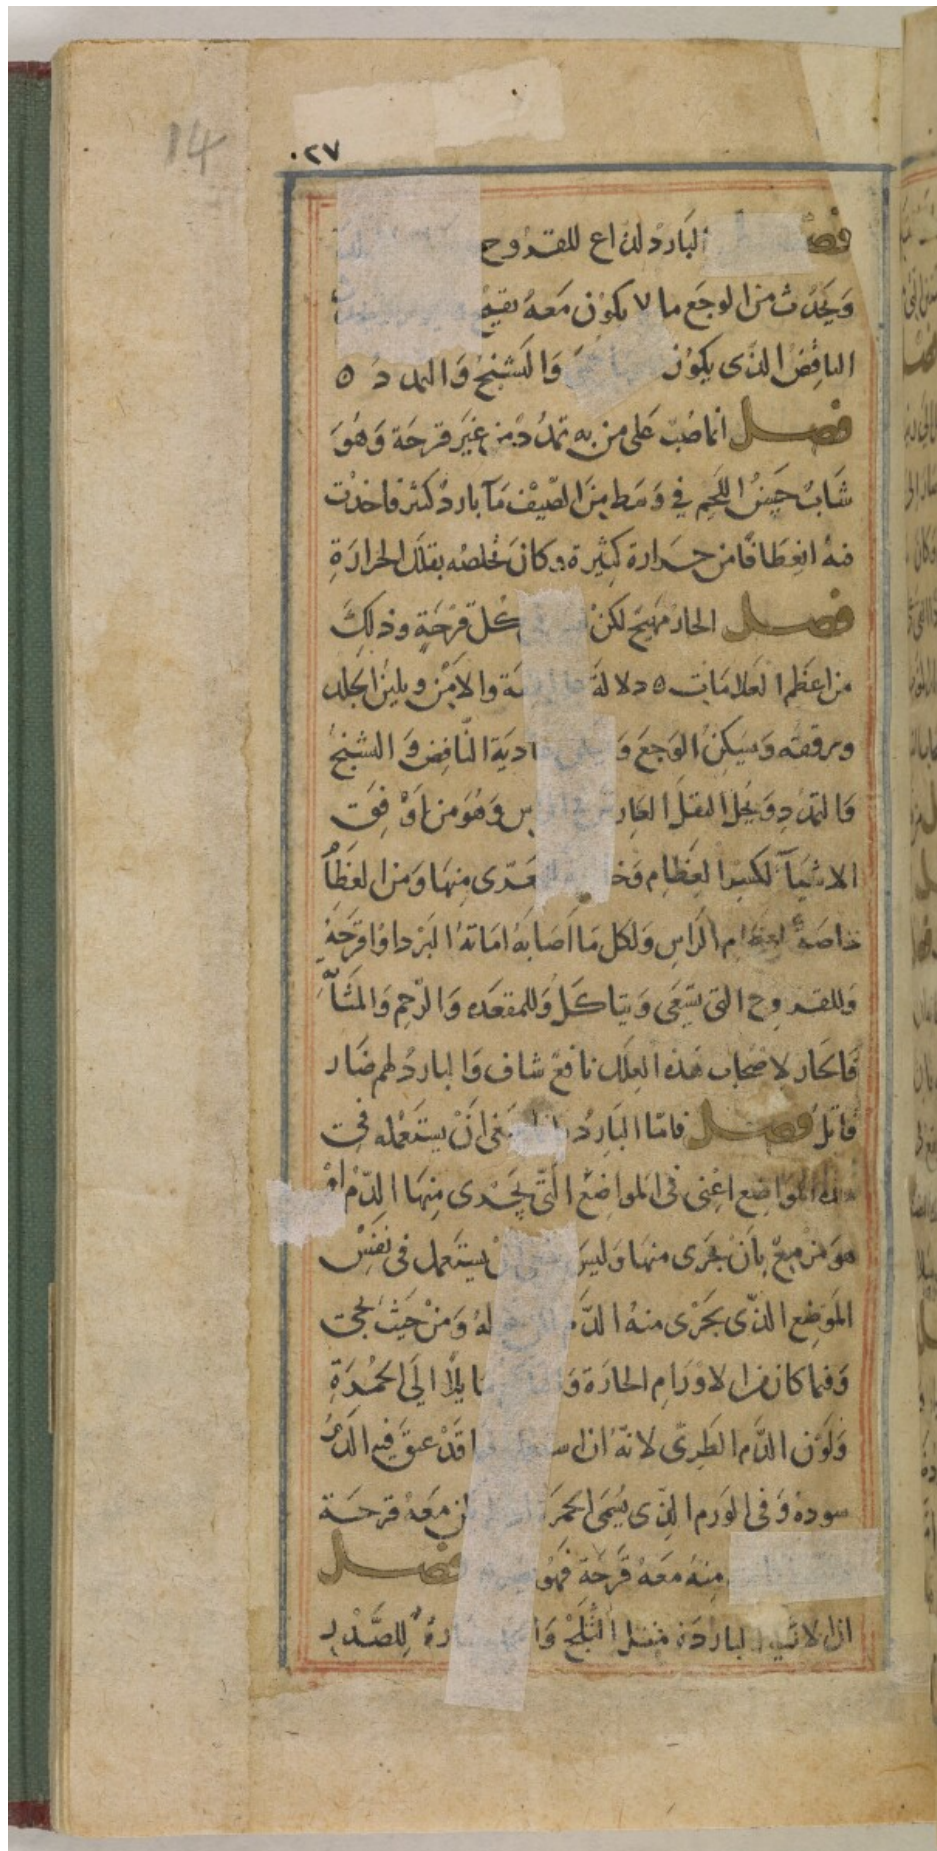 14
٠٢٧
فصل البارد لذاع للقروح
ويحدث من الوجع ما لا يكون معه تقيح
النافض الذي يكون والتشنج والتمدد ه
فصل انما صب على من به تمدد من غير قرحة وهو
شاب حسن اللحم في وسط من الصيف ماء بارد كثير فاحدث
فيه انعطافا من حرارة كثيرة وكان تخلصه بقلك الحرارة
فصل الحار مهيج لكن كل قرحة وذلك
من اعظم العلامات ه دلالة والامن ويلين الجلد
ويرققه ويسكن الوجع و عادية النافض والتشنج
والتمدد ويحل الثقل العارض وهو من اوفق
الاشياء لكسر العظام المعرى منها ومن العظام
خاصة لعظام الراس ولكل ما اصابه اماتة البرد او اقرحه
وللقروح التي تسعى ويتاكل وللمقعدة والرحم والمثانة
فالحار لاصحاب هذه العلل نافع شاف والبارد لهم ضار
قاتل فصل فاما البارد ينبغي ان يستعمله في
هذه المواضع اعني في المواضع التي يجرى منها الدم او
هو مزمع بان يجرى منها وليس يستعمل في نفس
الموضع الذي يجرى منه الدم حوله ومن حيث يجي
وفيما كان من الاورام الحارة و مايلا الى الحمرة
ولون الدم الطري لانه ان قد عتق فيه الدم
سوده وفي الورم الذي يسمى الحمرة معه قرحة
منه معه قرحة فهو فصل
ان الاشياء الباردة مثل الثلج و ضارة للصدر